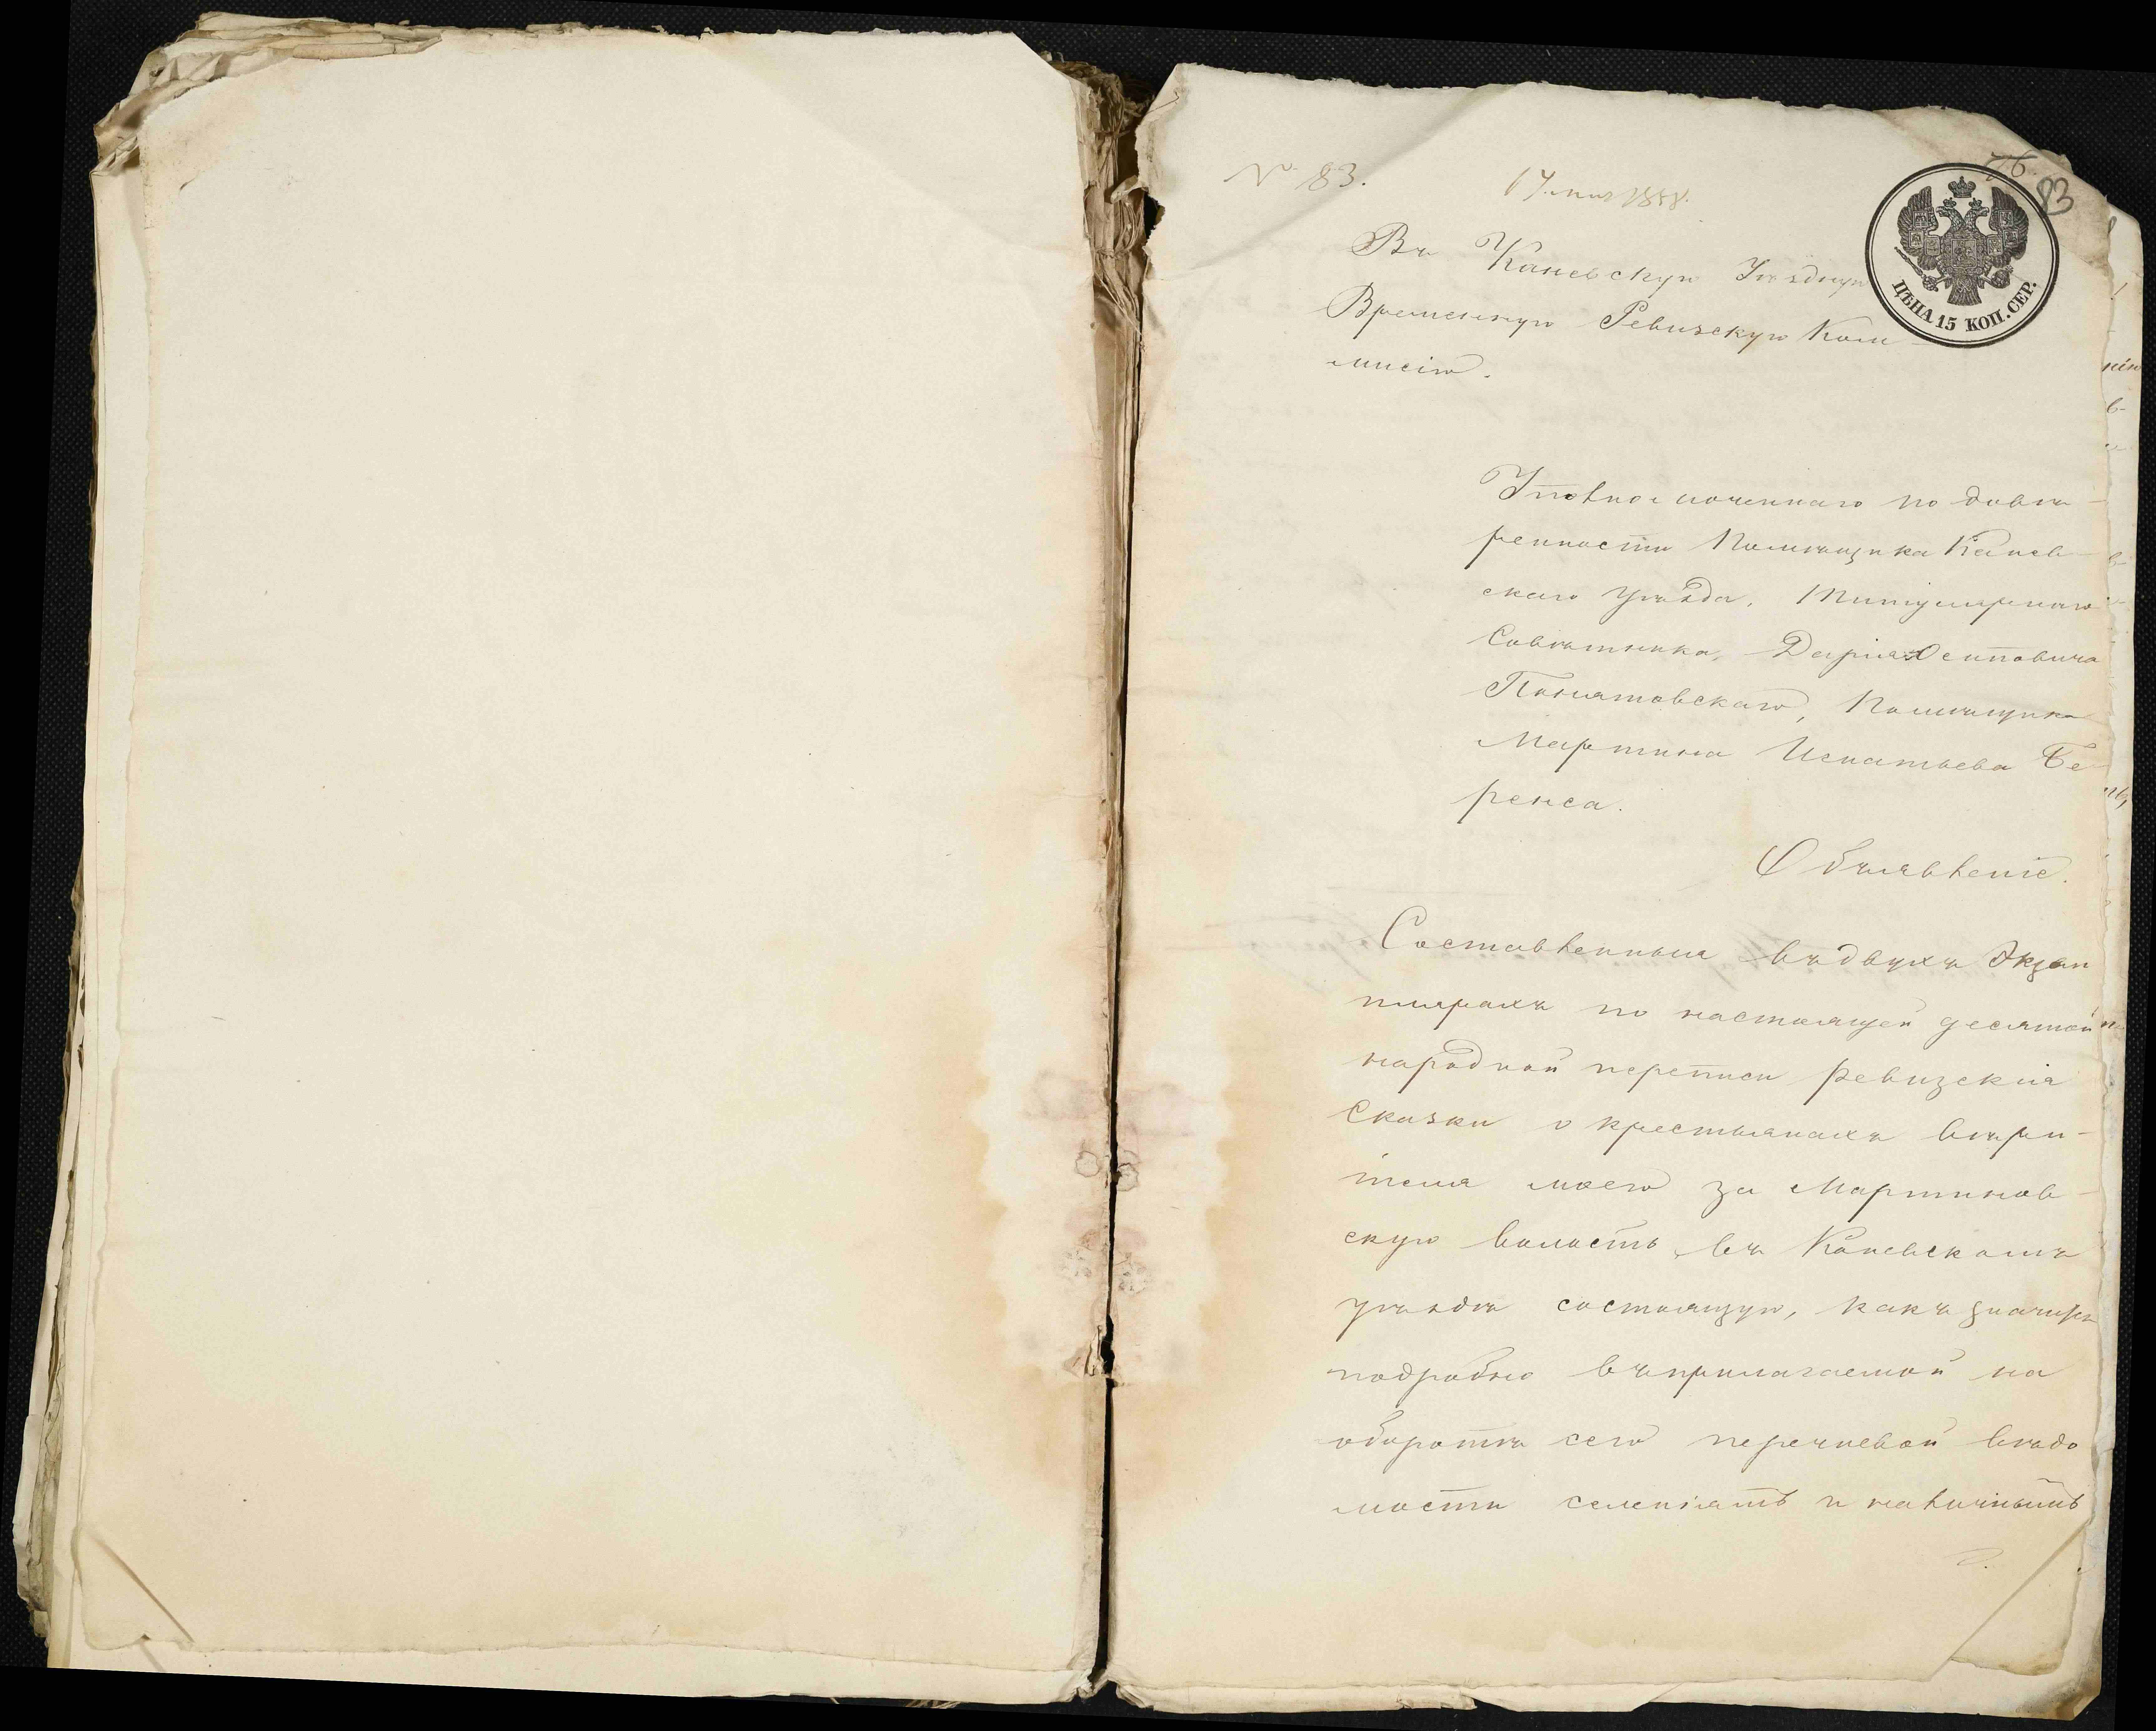 № 83.
17 мая 1858.
76.
83
ЦѢНА 15 КОП. СЕР.
Въ Каневскую Уѣздную
Временную Ревизскую Ком-
мисію.
Уполномоченнаго по довѣ-
ренности Помѣщика Канев-
скаго уѣзда, Титулярнаго
Совѣтника, Дарія Осиповича
Понятовскаго, Помѣщика
Мартина Игнатьева Бе-
ренса.
Объявленіе.
Составленныя въ двухъ Экзем
плярахъ по настоящей десятой
народной переписи ревизскія
Сказки о крестьянахъ вѣри-
теля моего за Мартинов-
скую волость въ Каневскомъ
уѣздѣ состоящую, какъ значится
подробно въ прилагаемой на
оборотѣ сего перечневой вѣдо
мости селеніямъ и наличнымъ